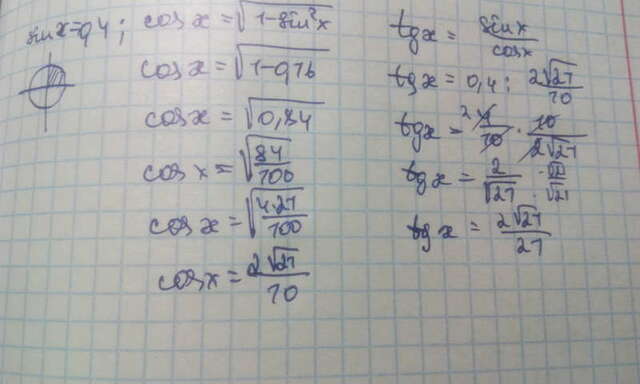 sin x=0,4; cos x = √(1-sin²x)
cos x = √(1-0,16)
cos x = √(0,84)
cos x = √(84/100)
cos x = √(4·21/100)
cos x = 2√21/10
tg x = sin x/cos x
tg x = 0,4 : 2√21/10
tg x = 2 4/10 · 10/2√21
tg x = 2/√21 ·√21/·√21
tg x = 2√21/21